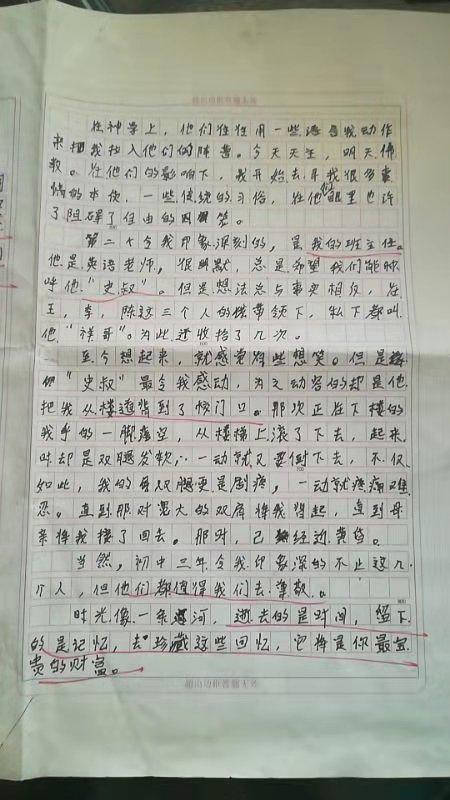 超出边框答题无效
在神学上，他们往往用一些语言或动作
来把我拉入他们的阵营。今天天主，明天佛
教。在他们的影响下，我开始去寻找很多事
情的本质，一些传统的习俗，在他们眼里也许
了阻碍了自由的囚笼。
第二个令我印象深刻的，是我的班主任。
他是英语老师，很幽默，总是希望我们能称
呼他“史叔”。但是想法总与事实相反，在
王，李，陈这三个人的带领下，私下都叫
他“祥哥”。为此还收拾了几次。
至今想起来，就感觉有些想笑。但是
“史叔”最令我感动，为之动容的却是他
把我从楼道背到了校门口。那次正在下楼的
我手的一脚踏空，从楼梯上滚了下去，起来
时却是双腿发软，一动就又要倒下去，不仅
如此，我的双腿更是剧疼，一动就疼痛难
忍。直到那对宽大的双肩将我背起，直到母
亲将我接了回去。那时，已经近黄昏。
当然，初中三年令我印象深的不止这几
个人，但他们都值得我们去尊敬。
时光像一条河，逝去的是时间，留下
的是记忆，去珍藏这些回忆，它将是你最宝
贵的财富。
超出边框答题无效